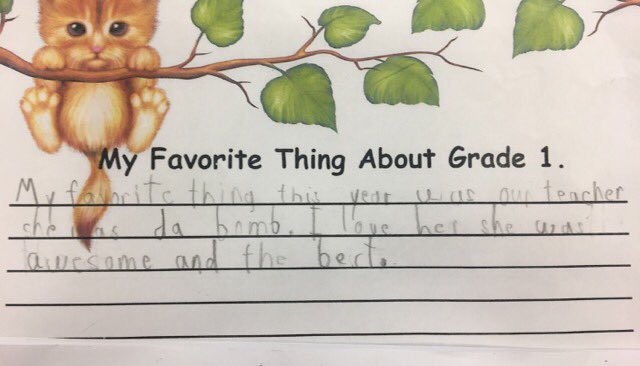 My Favorite Thing About Grade 1.
My favorite thing this year was our teacher
she was da bomb. I love her she was
awesome and the best.